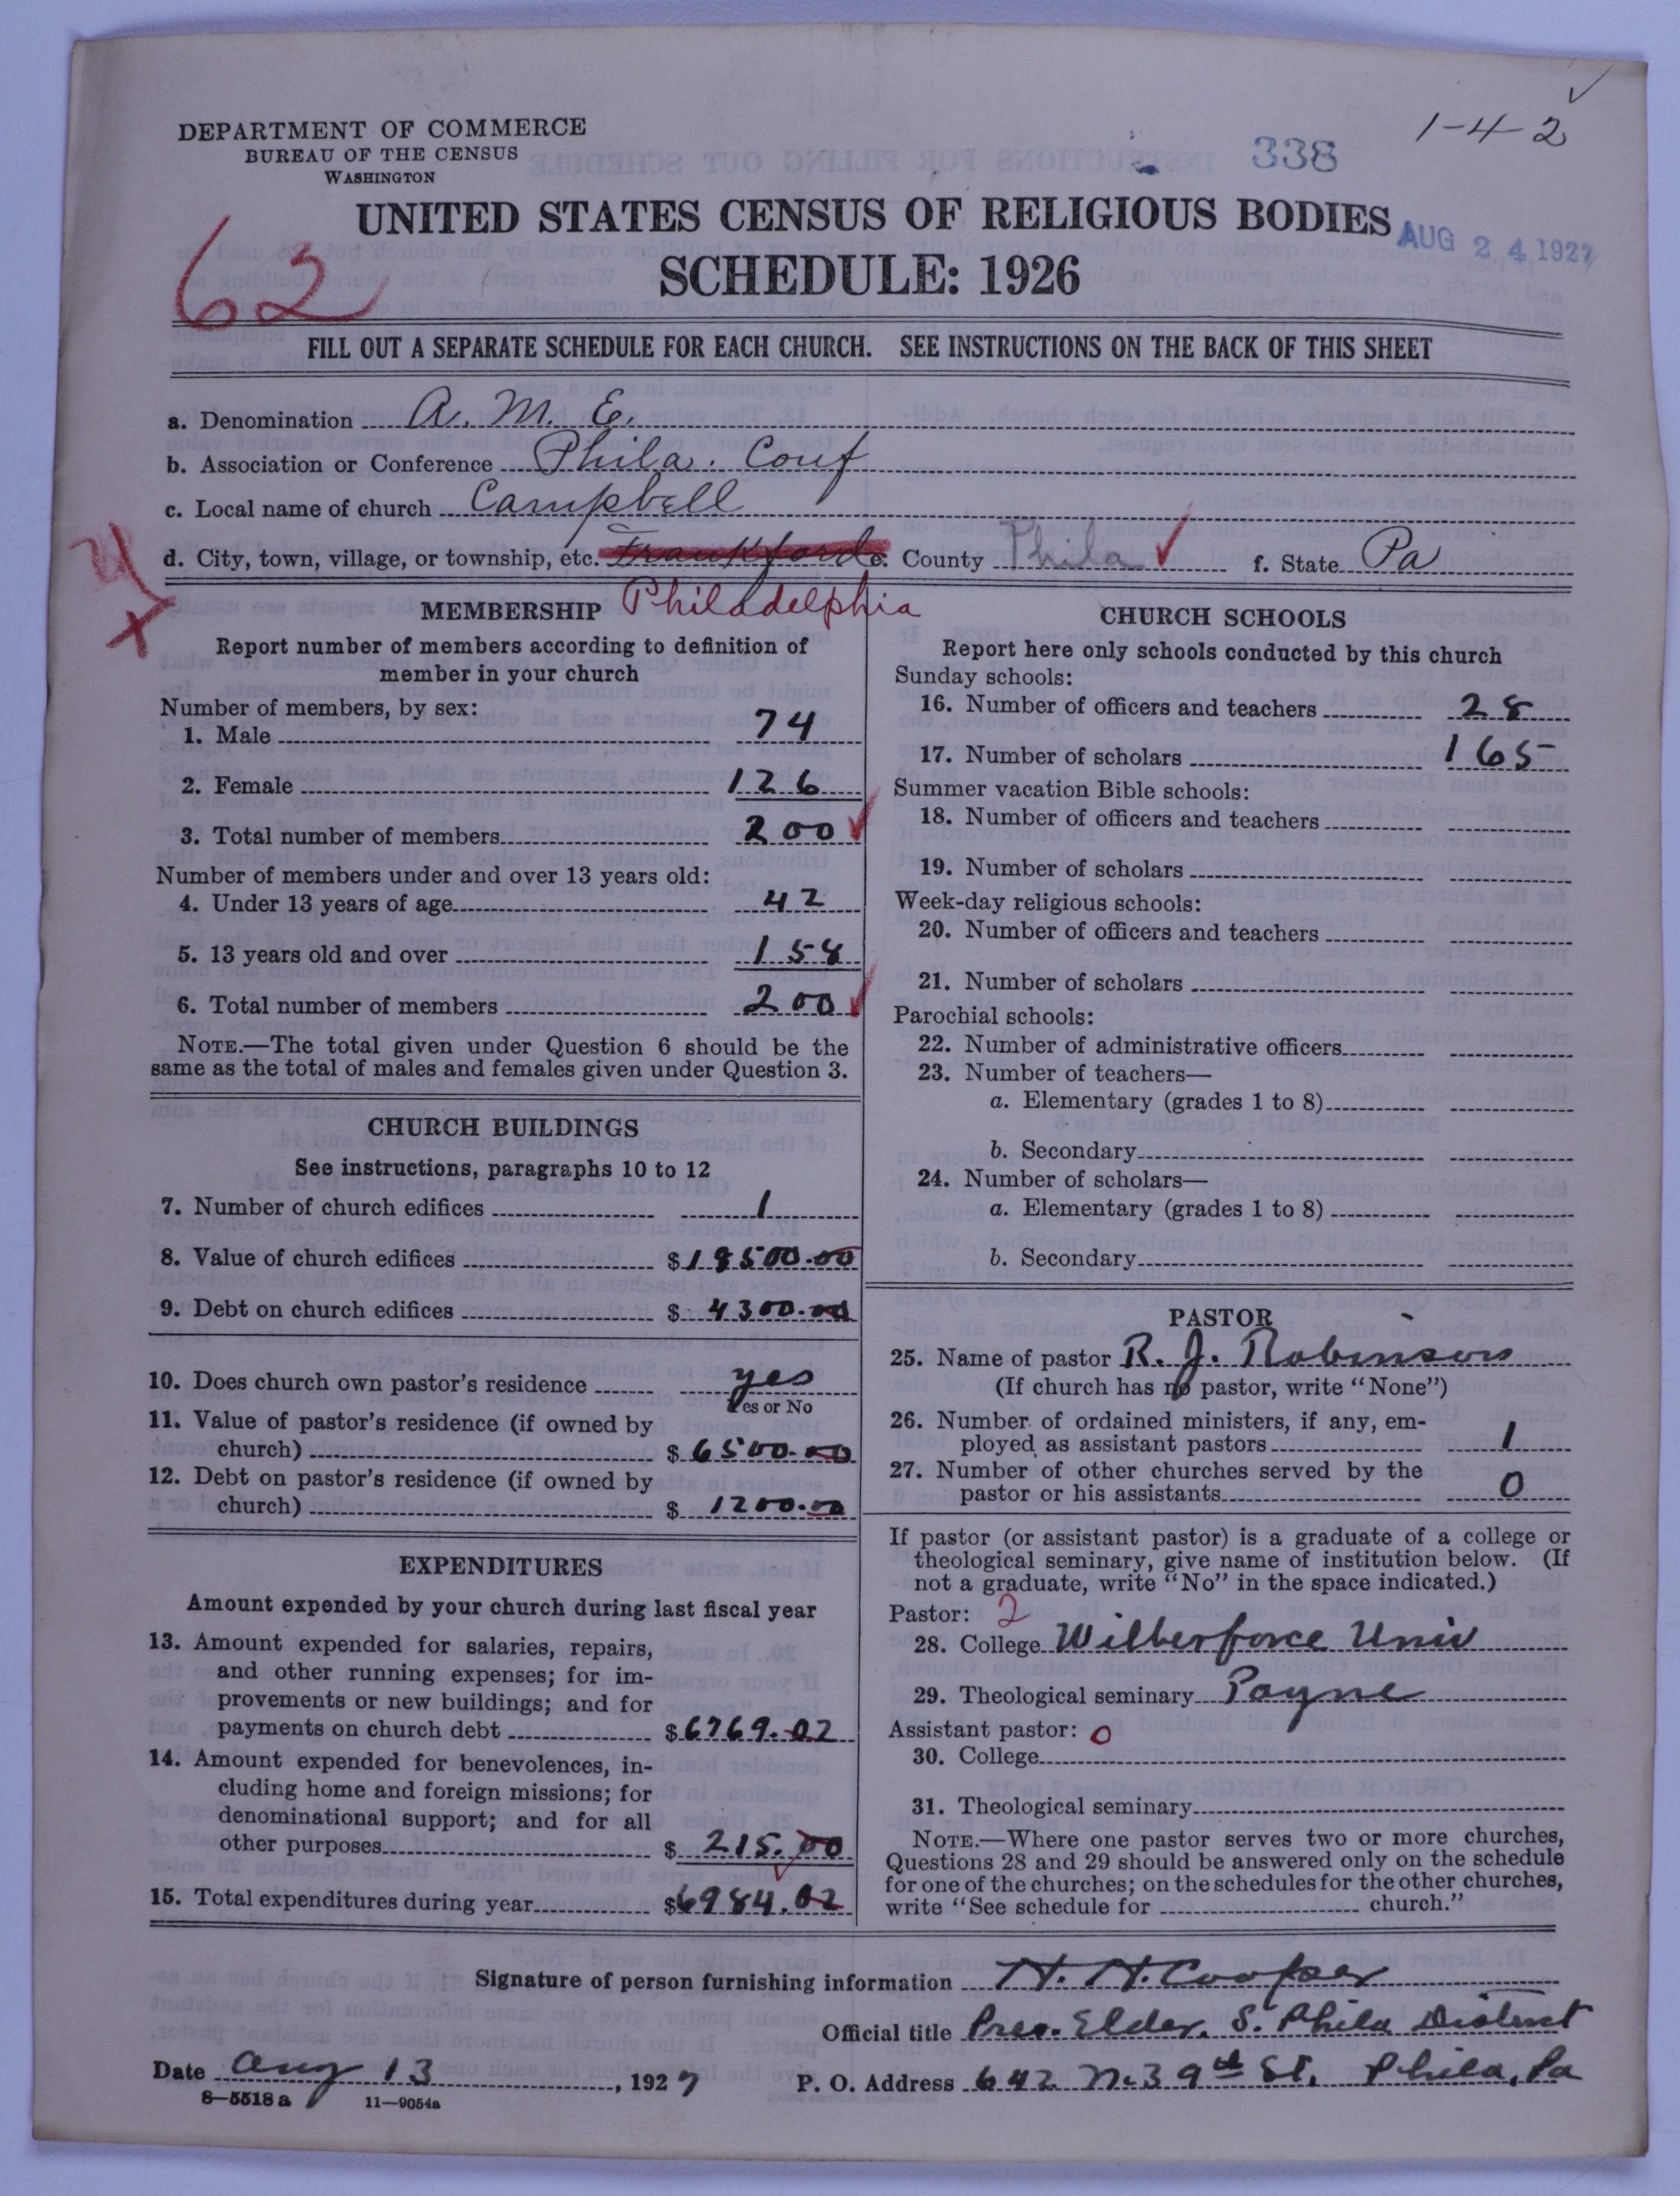 1-4-2
DEPARTMENT OF COMMERCE
BUREAU OF THE CENSUS
WASHINGTON
338
UNITED STATES CENSUS OF RELIGIOUS BODIES
AUG 24 1927
SCHEDULE: 1926
62
FILL OUT A SEPARATE SCHEDULE FOR EACH CHURCH. SEE INSTRUCTIONS ON THE BACK OF THIS SHEET
a. Denomination A. M. E.
b. Association or Conference Phila. Conf
c. Local name of church Campbell
d. City, town, village, or township, etc. Frankford e. County Phila f. State Pa
Philadelphia
MEMBERSHIP
Report number of members according to definition of
member in your church
Number of members, by sex:
1. Male 74
2. Female 126
3. Total number of members 200
Number of members under and over 13 years old:
4. Under 13 years of age 42
5. 13 years old and over 158
6. Total number of members 200
NOTE.—The total given under Question 6 should be the
same as the total of males and females given under Question 3.
CHURCH BUILDINGS
See instructions, paragraphs 10 to 12
7. Number of church edifices 1
8. Value of church edifices $ 18500.00
9. Debt on church edifices $ 4300.00
10. Does church own pastor's residence yes
Yes or No
11. Value of pastor's residence (if owned by
church) $ 6500.00
12. Debt on pastor's residence (if owned by
church) $ 1200.00
EXPENDITURES
Amount expended by your church during last fiscal year
13. Amount expended for salaries, repairs,
and other running expenses; for im-
provements or new buildings; and for
payments on church debt $ 6769.02
14. Amount expended for benevolences, in-
cluding home and foreign missions; for
denominational support; and for all
other purposes $ 215.00
15. Total expenditures during year $ 6984.02
CHURCH SCHOOLS
Report here only schools conducted by this church
Sunday schools:
16. Number of officers and teachers 28
17. Number of scholars 165
Summer vacation Bible schools:
18. Number of officers and teachers
19. Number of scholars
Week-day religious schools:
20. Number of officers and teachers
21. Number of scholars
Parochial schools:
22. Number of administrative officers
23. Number of teachers—
a. Elementary (grades 1 to 8)
b. Secondary
24. Number of scholars—
a. Elementary (grades 1 to 8)
b. Secondary
PASTOR
25. Name of pastor R. J. Robinson
(If church has no pastor, write "None")
26. Number of ordained ministers, if any, em-
ployed as assistant pastors 1
27. Number of other churches served by the
pastor or his assistants 0
If pastor (or assistant pastor) is a graduate of a college or
theological seminary, give name of institution below. (If
not a graduate, write "No" in the space indicated.)
Pastor: 2
28. College Wilberforce Univ
29. Theological seminary Payne
Assistant pastor: 0
30. College
31. Theological seminary
NOTE.—Where one pastor serves two or more churches,
Questions 28 and 29 should be answered only on the schedule
for one of the churches; on the schedules for the other churches,
write "See schedule for church."
Signature of person furnishing information H. H. Cooper
Official title Pres. Elder. S. Phila District
Date Aug 13, 1927 P. O. Address 642 N. 39th St. Phila, Pa
8—5518 a 11—9054a